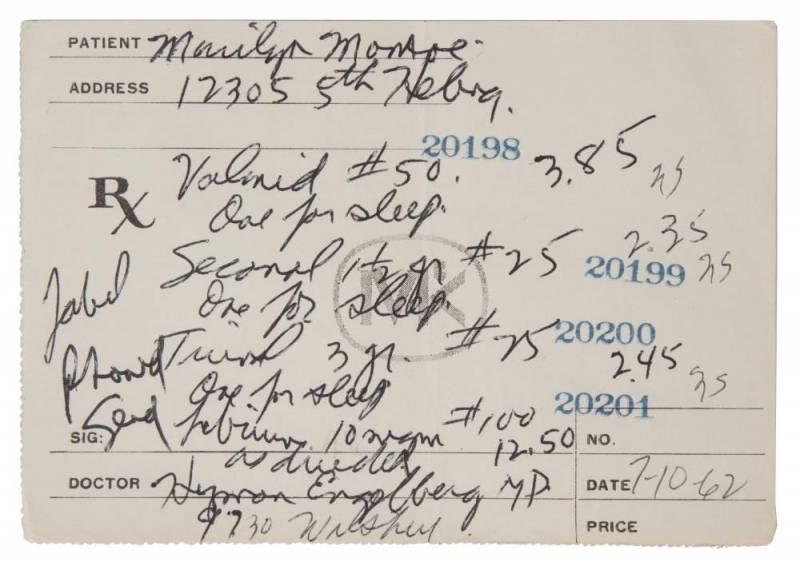 PATIENT Marilyn Monroe
ADDRESS 12305 5th Helena
20198
Rx Valmid #50. 3.85
One for sleep.
Label Seconal 1½ gr #25 2.35
20199
One for sleep.
MK
Tuinal 3 gr. #25 20200
2.45
One for sleep
20201
Send Librium 10 mgm #100 12.50
SIG: NO.
as directed
DOCTOR Hyman Engelberg MD DATE 7-10-62
9730 Wilshire
PRICE